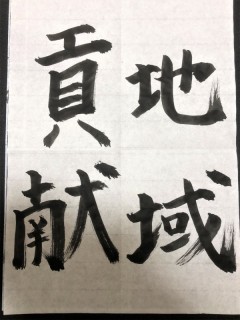 地域
貢献